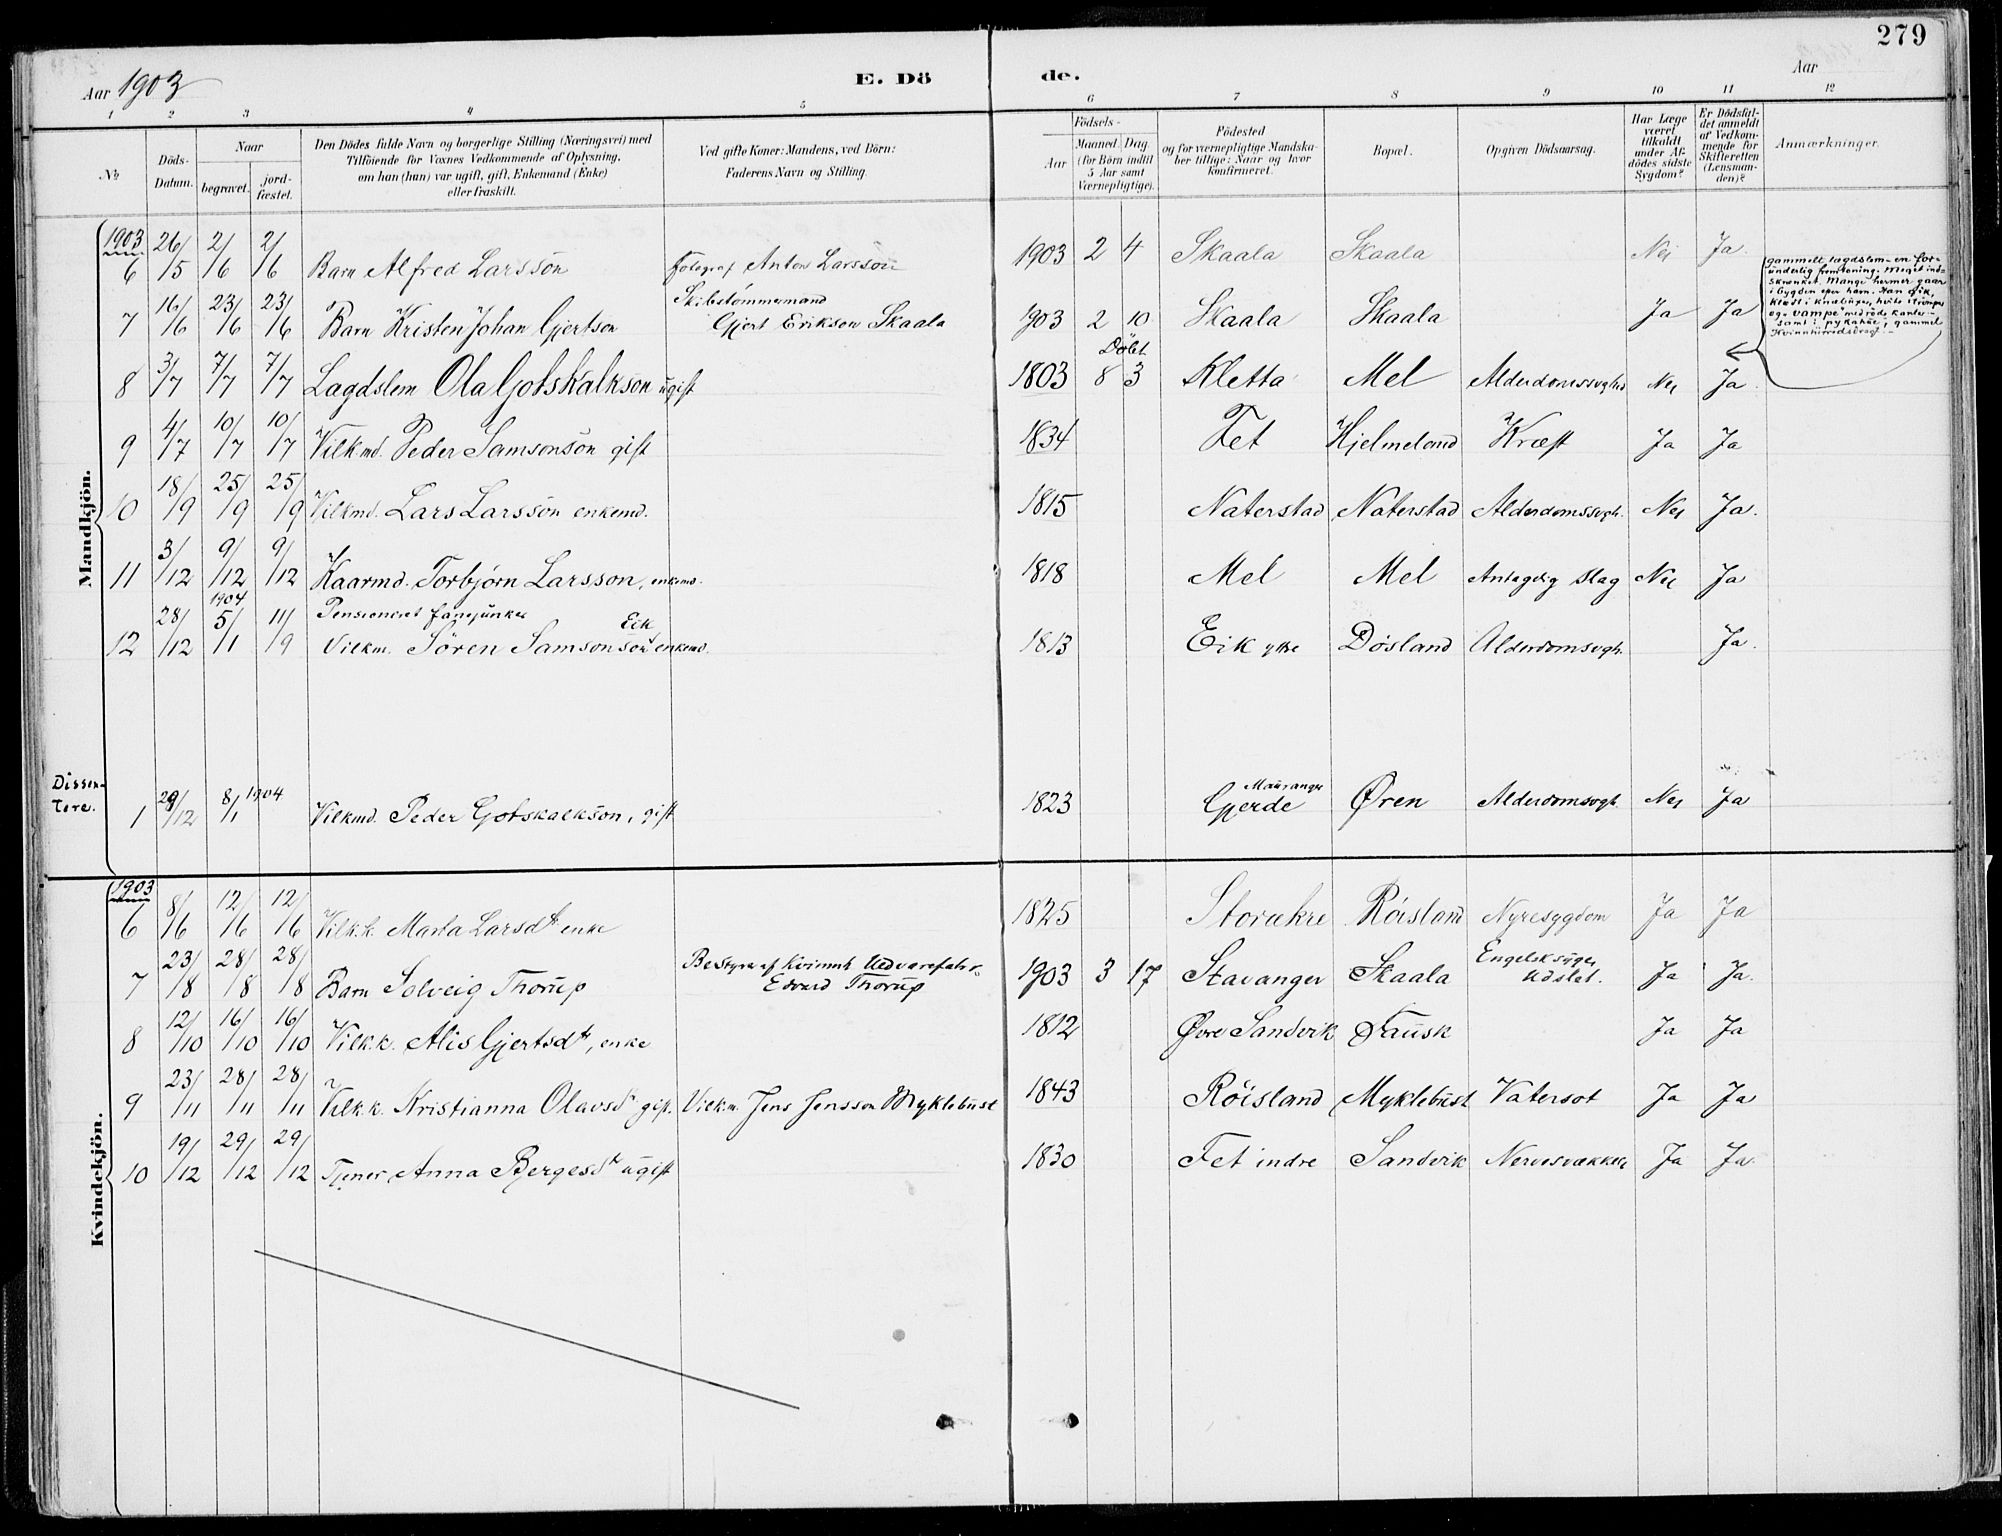 279
Aar 1903 E. Dö de. Aar
1 2 3 4 5 6 7 8 9 10 11 12
№ Döds-Datum. Naar begravet. jordfæstet. Den Dödes fulde Navn og borgerlige Stilling (Næringsvei) med Tilföiende for Voxnes Vedkommende af Oplysning, om han (hun) var ugift, gift, Enkemand (Enke) eller fraskilt. Ved gifte Koner: Mandens, ved Börn: Faderens Navn og Stilling. Födsels- Aar Maaned. Dag. (for Börn indtil 5 Aar samt Værnepligtige). Födested og for værnepligtige Mandskaber tillige: Naar og hvor konfirmeret. Bopæl. Opgiven Dödsaarsag. Har Læge været tilkaldt under Afdödes sidste Sygdom? Er Dödsfaldet anmeldt af Vedkommende for Skifteretten (Lensmanden)? Anmærkninger.
Mandkjön.
1903
6 26/5 2/6 2/6 Barn Alfred Larsson Fotograf Anton Larsson 1903 2 4 Skaala Skaala Nei Ja
7 16/6 23/6 23/6 Barn Kristen Johan Gjertson Skibstømmermand Gjert Erikson Skaala 1903 2 10 Skaala Skaala Ja Ja
8 3/7 7/7 7/7 Lagdslem Ola Gotskalkson ugift 1803 Døbt 8 3 Kletta Mel Alderdomssvghd Nei Ja
gammelt lagdslem – en for-
underlig fremtoning. Meget ind-
skrænket. Mange hermer gaar
i bygden efter ham. Han gik
klædt i knæbuxer, hvite strømper
og "vampe" med røde kanter
samt i pykahue, gammel
9 4/7 10/7 10/7 Vilkmd. Peder Samsonson gift 1834 Fet Hjelmeland Kræft Ja Ja
10 18/9 25/9 25/9 Vilkmd. Lars Larsson enkemd. 1815 Naterstad Naterstad Alderdomssvgh. Nei Ja.
11 3/12 9/12 9/12 Kaarmd. Torbjørn Larsson, enkemd. 1818 Mel Mel Antagelig slag Nei Ja
12 28/12 1904 5/1 11/9 Pensioneret fanejunker Vilkm. Sören Samsonson Eik enkemd. 1813 Eik ytre Døsland Alderdomsvgh. Ja.
Dissen-
tere.
1 29/12 8/1 1904 Vilkmd. Peder Gotskalkson, gift 1823 Mauranger Gjerde Øren Alderdomsvgh. Nei Ja
Kvindekjön.
1903
6 8/6 12/6 12/6 Vilk.k. Marta Larsdt enke 1825 Storækre Røisland Nyresygdom Ja Ja
7 23/8 28/8 28/8 Barn Solveig Thorup Bestyrer af Kvinnh. Uldvarefabr. Edvard Thorup 1903 3 17 Stavanger Skaala Engelsk syge, Udslet. Ja Ja.
8 12/10 16/10 16/10 Vilk.k. Alis Gjertsdt, enke 1812 Øvre Sandvik Fausk Ja Ja
9 23/11 28/11 28/11 Vilk.k. Kristianna Olavsdt gift. Vilk.m. Jens Jensson Myklebust 1843 Røisland Myklebust Vatersot Ja Ja
10 19/12 29/12 29/12 Tjener Anna Bergesdt ugift 1830 Fet indre Sandvik Nervesvækkelse Ja Ja